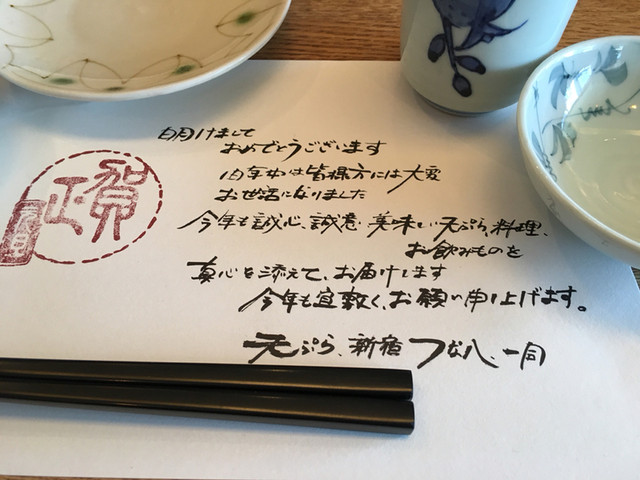 賀正
明けまして
おめでとうございます
旧年中は皆様方には大変
お世話になりました
今年も誠心、誠意 美味しい天ぷら、料理、
お飲みものを
真心を添えて、お届けします
今年も宜敷く、お願い申し上げます。
天ぷら、新宿 つな八、一同